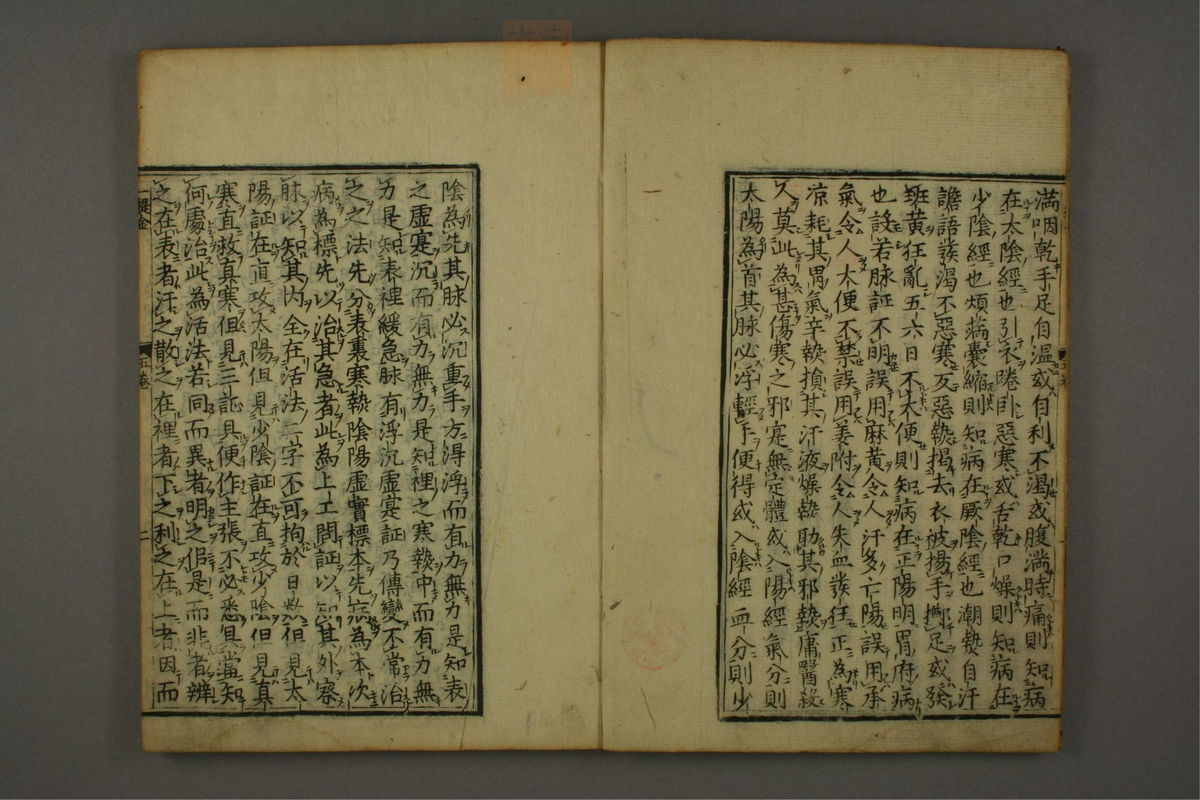 満咽乾手足自温或自利不渇或腹満時痛則知病
在太陰經也引衣踡臥惡寒或舌乾口燥則知病在
少陰經也煩満囊縮則知病在厥陰經也潮熱自汗
譫語發渇不惡寒反惡熱揭去衣被揚手擲足或發
班黄狂亂五六日不大便則知病在正陽明胃府病
也設若脉証不明誤用麻黄令人汗多亡陽誤用承
氣令人大便不禁誤用姜附令人失血發狂正為寒
凉耗其胃氣辛熱損其汗液燥熱助其邪熱庸醫殺
人莫此為甚傷寒之邪寔無定體或入陽經氣分則
太陽為首其脉必浮輕手便得或入陰經血分則少
陰為先其脉必沉重手方得浮而有力無力是知表
之虚寔沉而有力無力是知裡之寒熱中而有力無
力是知表裡緩急脉有浮沉虚寔証乃傳變不常治
之之法先分表裏寒熱陰陽虚實標本先病為本次
病為標先以治其急者此為上工問証以知其外察
脉以知其内全在活法二字不可拘於日数但見太
陽証在直攻太陽但見少陰証在直攻少陰但見真
寒直救真寒但見三証具便作主張不必悉具當知
何處治此為活法若同而異者明之似是而非者辨
之在表者汗之散之在裡者下之利之在上者因而
一提金 五卷 二